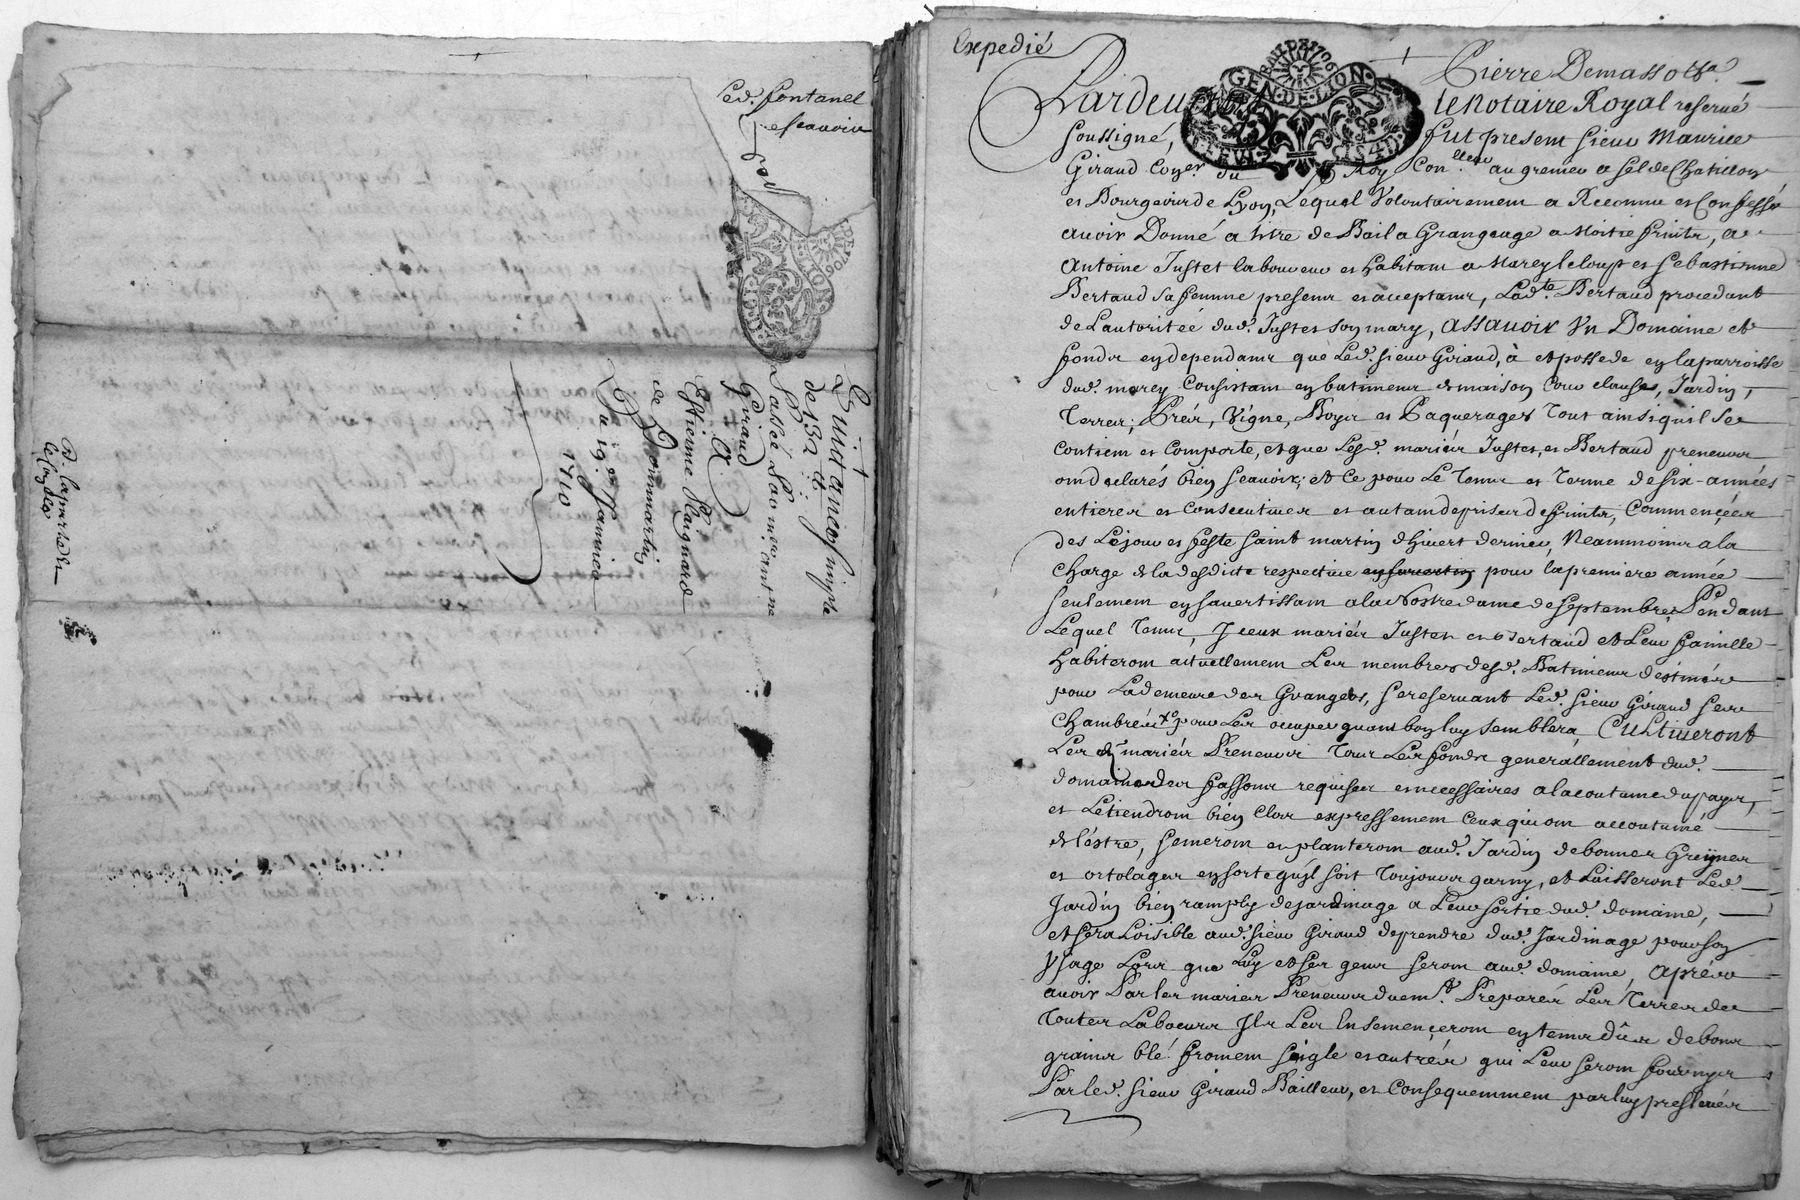 Led. fontanel
scavoir
Quittance simple
de 132 tt
Passée Par me. ant.ne
Giraud
A
Estienne Plagnard
de Dommartin
Du 19e. Janvier
1710
Expedié
GEN·DE·LYON·
Pierre Demasso
Pardevant le Notaire Royal reservé
soussigné, fut present sieur Maurice
Giraud Coner. du Roy Con.lleur au grenier a sel de Chatillon
et Bourgeois de Lyon, Lequel Volontairement a Reconnu et Confessé
avoir Donné a titre de Bail a Grangeage a Moitié fruits, a
Antoine Justet laboureur et habitant a Marcy le loup et Sebastienne
Bertaud sa femme presents et acceptants, Lad.te Bertaud procedant
de L'autoritéé dud. Justet son mary, assavoir Un Domaine et
fonds en dependants que Led. sieur Giraud, à et possede en la parroisse
dud. marcy Consistant en batiments et maison Cour clause, Jardin,
Terres, Préz, Vigne, Boys et Paquerages Tout ainsi qu'il se
contient et Comporte, et que Lesd. mariés Justet, et Bertaud preneurs
ont declarés bien scavoir, et Ce pour Le Temps et Terme de six années
entieres et Consecutives et autant de prises de fruits, Commencées
des Le jour et feste saint martin d'hivert dernier, Neantmoins a la
charge de la desdicte respective pour la premiere année
seulement en s'avertissant a la Nostre dame de septembre, Pendant
Lequel Temps, Iceux mariés Justet et Bertaud et Leur famille
habiteront actuellement Les membres desd. Batiments déstinés
pour La demeure des Grangers, se reservant Led. sieur Giraud ses
Chambres pour Les occuper quant bon luy semblera, Cultiveront
Les d. mariés Preneurs Tous Les fonds generallement dud.
domaine des fassons requises et necessaires a la coutume du pays,
et Le tiendront bien Clos expressement Ceux qui ont accoutumé
de l'éstre, semeront et planteront aud. Jardin de bonnes Greynes
et ortolages en sorte qu'il soit Toujours garny, et Laisseront Led.
Jardin bien remply de jardinage a Leur sortie dud. domaine,
et sera Loisible aud. sieur Giraud de prendre dud. Jardinage pour son
Usage Lors que Luy et ses gens seront aud. domaine, aprés
avoir Par les mariés Preneurs duemt. Preparés Les Terres de
Toutes Labeurs Ils Les Ensemençeront en temps dûes de bons
grains blé froment seigle et autrés qui Leur seront fournys
Par led. sieur Giraud Bailleur, et Consequemment par luy preslevés